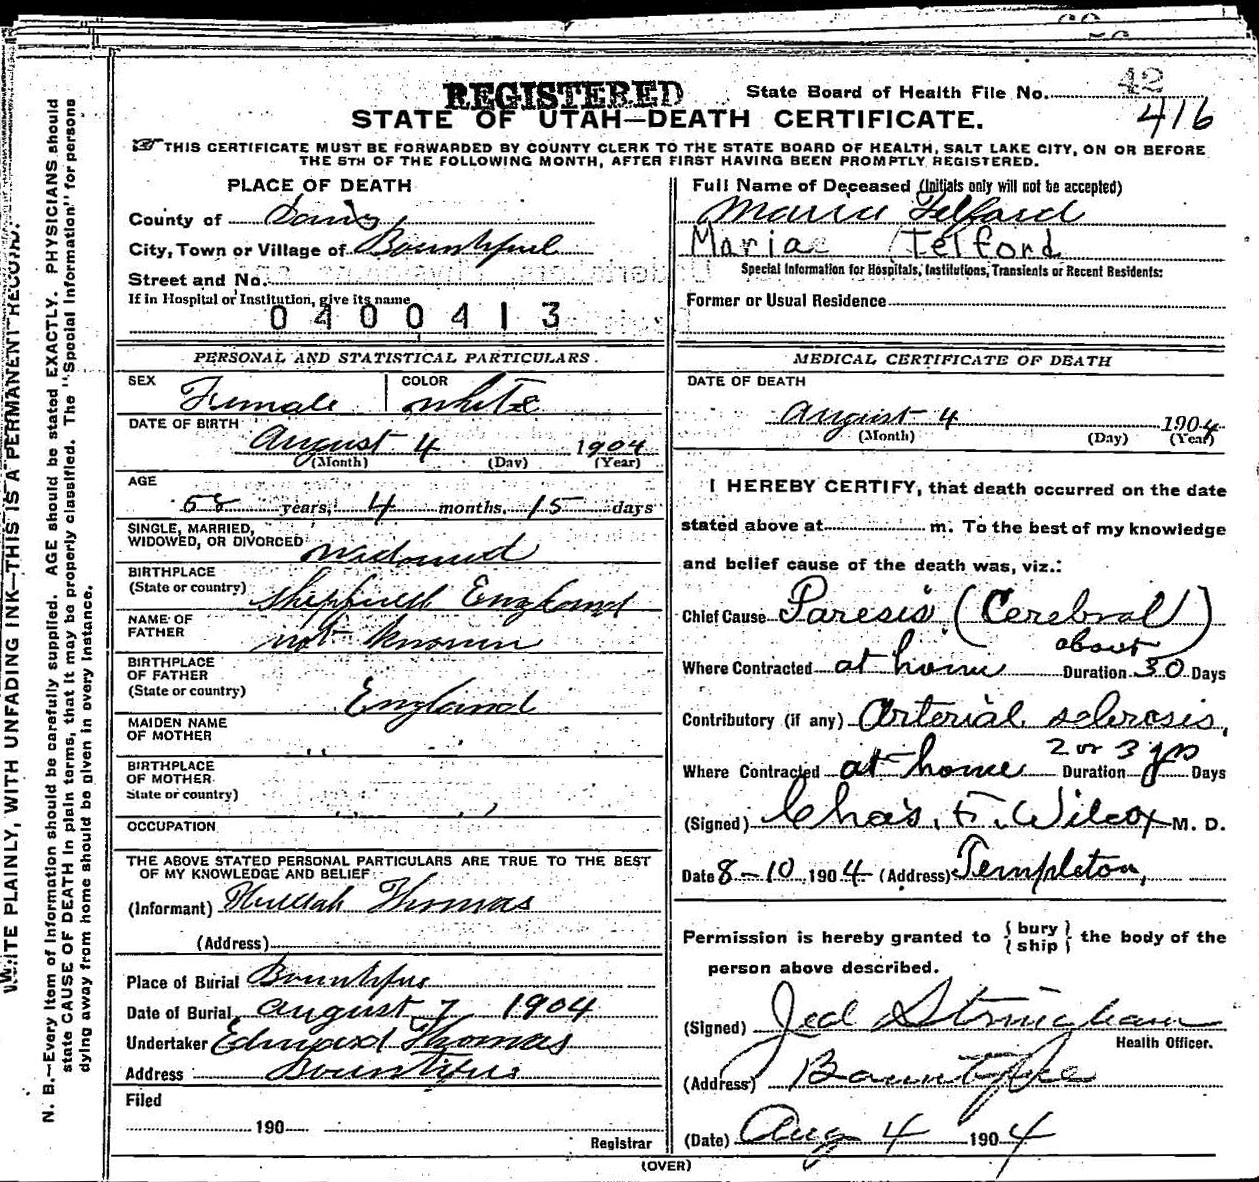 42
REGISTERED State Board of Health File No.
416
STATE OF UTAH—DEATH CERTIFICATE.
THIS CERTIFICATE MUST BE FORWARDED BY COUNTY CLERK TO THE STATE BOARD OF HEALTH, SALT LAKE CITY, ON OR BEFORE
THE 5TH OF THE FOLLOWING MONTH, AFTER FIRST HAVING BEEN PROMPTLY REGISTERED.
PLACE OF DEATH
County of Davis
City, Town or Village of Bountiful
Street and No.
If in Hospital or Institution, give its name
0400413
PERSONAL AND STATISTICAL PARTICULARS.
SEX Female COLOR White
DATE OF BIRTH
August 4 1904
(Month) (Day) (Year)
AGE
58 years, 4 months, 15 days
SINGLE, MARRIED,
WIDOWED, OR DIVORCED widowed
BIRTHPLACE
(State or country) Sheffield England
NAME OF
FATHER not known
BIRTHPLACE
OF FATHER
(State or country) England
MAIDEN NAME
OF MOTHER ,,
BIRTHPLACE
OF MOTHER
State or country) ,,
OCCUPATION
THE ABOVE STATED PERSONAL PARTICULARS ARE TRUE TO THE BEST
OF MY KNOWLEDGE AND BELIEF
(Informant) Thomas
(Address)
Place of Burial Bountiful
Date of Burial, August 7 1904
Undertaker Edward Thomas
Address Bountiful
Filed
190
Registrar
Full Name of Deceased (Initials only will not be accepted)
Maria Telford
Maria Telford
Special Information for Hospitals, Institutions, Transients or Recent Residents:
Former or Usual Residence
MEDICAL CERTIFICATE OF DEATH
DATE OF DEATH
August 4 1904
(Month) (Day) (Year)
I HEREBY CERTIFY, that death occurred on the date
stated above at m. To the best of my knowledge
and belief cause of the death was, viz.:
Chief Cause Paresis (Cerebral)
about
Where Contracted at home Duration 30 Days
Contributory (if any) Arterial sclerosis,
2 or 3 yrs
Where Contracted at home Duration Days
(Signed) Chas. F. Wilcox M. D.
Date 8-10 1904 (Address) Templeton,
Permission is hereby granted to {bury
ship} the body of the
person above described.
(Signed) Jed Stringham
Health Officer.
(Address) Bountiful
(Date) Aug 4 1904
(OVER)
WRITE PLAINLY, WITH UNFADING INK—THIS IS A PERMANENT RECORD.
N. B.—Every item of information should be carefully supplied. AGE should be stated EXACTLY. PHYSICIANS should
state CAUSE OF DEATH in plain terms, that it may be properly classified. The "Special Information" for persons
dying away from home should be given in every instance.